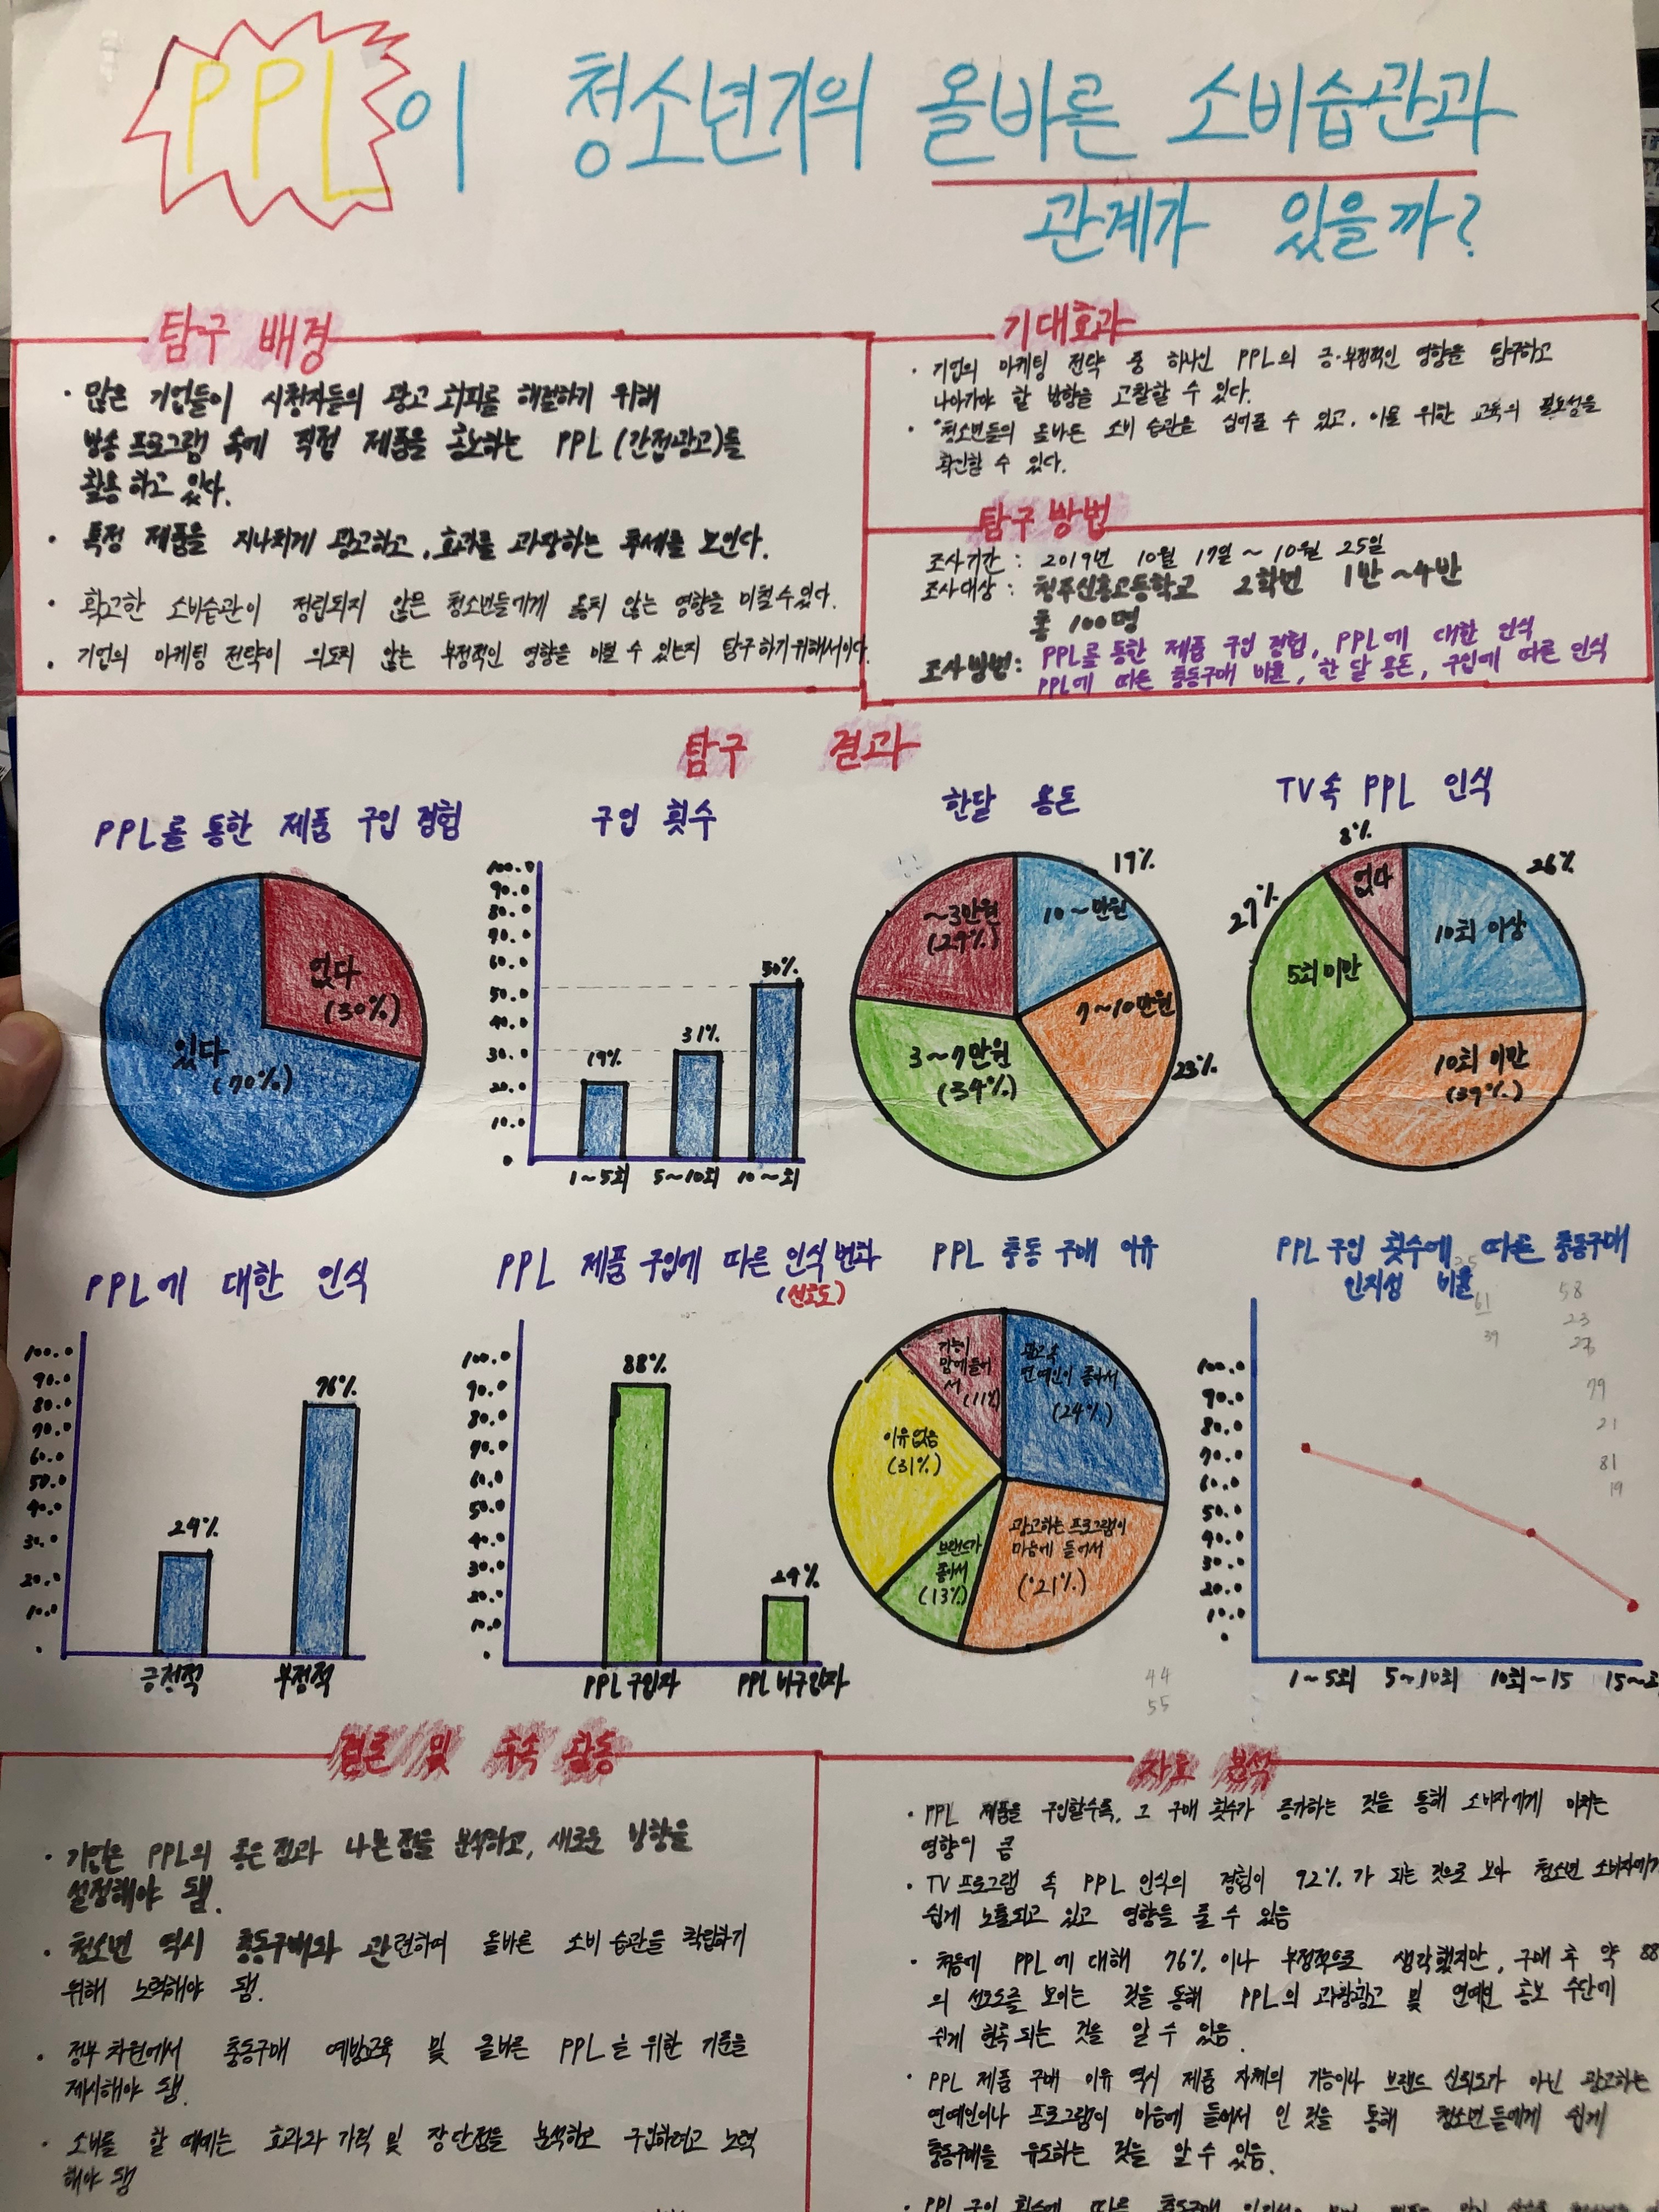 PPL이 청소년기의 올바른 소비습관과
관계가 있을까?
탐구 배경
· 많은 기업들이 시청자들의 광고 회피를 해결하기 위해
방송 프로그램 속에 직접 제품을 홍보하는 PPL (간접광고)를
활용하고 있다.
· 특정 제품을 지나치게 광고하고, 효과를 과장하는 추세를 보인다.
· 확고한 소비습관이 정립되지 않은 청소년들에게 옳지 않는 영향을 미칠 수 있다.
· 기업의 마케팅 전략이 의도치 않는 부정적인 영향을 미칠 수 있는지 탐구하기 위해서이다.
기대효과
· 기업의 마케팅 전략 중 하나인 PPL의 긍·부정적인 영향을 탐구하고
나아가야 할 방향을 고찰할 수 있다.
· 청소년들의 올바른 소비 습관을 심어줄 수 있고, 이를 위한 교육의 필요성을
확인할 수 있다.
탐구 방법
조사기간 : 2019년 10월 17일 ~ 10월 25일
조사대상 : 청주신흥고등학교 2학년 1반 ~ 4반
총 100명
조사방법 : PPL를 통한 제품 구입 경험, PPL에 대한 인식
PPL에 따른 충동구매 비율, 한 달 용돈, 구입에 따른 인식
탐구 결과
PPL를 통한 제품 구입 경험
없다
(30%)
있다
(70%)
구입 횟수
100.0
90.0
80.0
70.0
60.0
50.0
40.0
30.0
20.0
10.0
0
19%
31%
50%
1~5회 5~10회 10~회
한달 용돈
17%
10~만원
~3만원
(27%)
7~10만원
23%
3~7만원
(34%)
TV속 PPL 인식
8%
없다
26%
10회 이상
27%
5회 미만
10회 미만
(39%)
PPL에 대한 인식
100.0
90.0
80.0
70.0
60.0
50.0
40.0
30.0
20.0
10.0
24%
76%
긍정적 부정적
PPL 제품 구입에 따른 인식변화
(선호도)
100.0
90.0
80.0
70.0
60.0
50.0
40.0
30.0
20.0
10.0
88%
24%
PPL 구입자 PPL 비구입자
PPL 충동 구매 이유
기능이
맘에들어
서
(11%)
광고속
연예인이 좋아서
(24%)
이유없음
(31%)
브랜드가
좋아서
(13%)
광고하는 프로그램이
마음에 들어서
(21%)
44
55
PPL 구입 횟수에 따른 충동구매
인지성 비율
35
61
39
58
23
79
21
81
19
100.0
90.0
80.0
70.0
60.0
50.0
40.0
30.0
20.0
10.0
1~5회 5~10회 10회~15 15~
결론 및 후속 활동
· 기업은 PPL의 좋은 점과 나쁜 점을 분석하고, 새로운 방향을
설정해야 됨.
· 청소년 역시 충동구매와 관련하여 올바른 소비 습관을 확립하기
위해 노력해야 됨.
· 정부 차원에서 충동구매 예방교육 및 올바른 PPL을 위한 기준을
제시해야 됨.
· 소비를 할 때에는 효과와 가격 및 장단점을 분석하고 구입하려고 노력
해야 됨
자료 분석
· PPL 제품을 구입할수록, 그 구매 횟수가 증가하는 것을 통해 소비자에게 미치는
영향이 큼
· TV프로그램 속 PPL 인식의 경험이 92%가 되는 것으로 보아 청소년 소비자에게
쉽게 노출되고 있고 영향을 줄 수 있음
· 처음에 PPL에 대해 76%이나 부정적으로 생각했지만, 구매 후 약 88
의 선호도를 보이는 것을 통해 PPL의 과장광고 및 연예인 홍보 수단에
쉽게 현혹되는 것을 알 수 있음.
· PPL 제품 구매 이유 역시 제품 자체의 기능이나 브랜드 신뢰도가 아닌 광고하는
연예인이나 프로그램이 마음에 들어서 인 것을 통해 청소년들에게 쉽게
충동구매를 유도하는 것을 알 수 있음.
· PPL 구입 횟수에 따른 충동구매